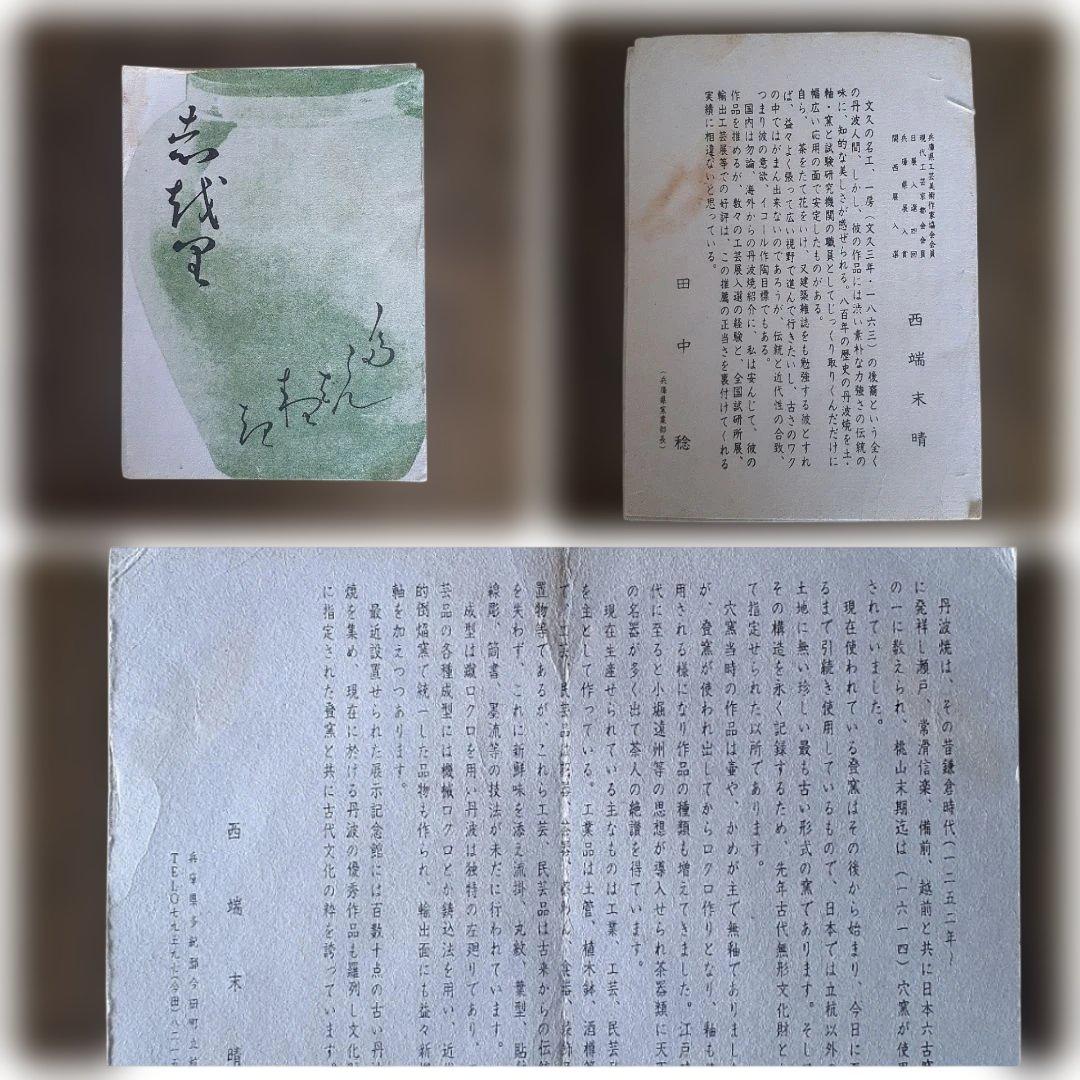 志越里
兵庫県工芸美術作家協会会員
現代工芸京都会会員
日展入選四回
兵庫県展入賞
関西展入選
西端末晴
文久の名工、一房(文久三年・一八六三)の後裔という全く
の丹波人間、しかし、彼の作品には渋い素朴な力強さの伝統の
味に、知的な美しさが感ぜられる。八百年の歴史の丹波焼を土・
釉・窯と試験研究機関の職員としてじっくり取りくんだだけに
幅広い応用の面で安定したものがある。
自ら、茶をたて花をいけ、又建築雑誌をも勉強する彼とすれ
ば、益々よく張って広い視野で進んで行きたいし、古さのワク
の中ではがまん出来ないのであろうが、伝統と近代性の合致、
つまり彼の意欲、イコール作陶目標でもある。
国内は勿論、海外からの丹波焼紹介に、私は安んじて、彼の
作品を推めるが、数々の工芸展入選の経験と、全国試研所展、
輸出工芸展等での好評は、この推薦の正当さを裏付けてくれる
実績に相違ないと思っている。
田中稔
(兵庫県窯業部長)
丹波焼は、その昔鎌倉時代(一二五二年〜
に発祥し瀬戸、常滑信楽、備前、越前と共に日本六古窯
の一に数えられ、桃山末期迄は(一六一四)穴窯が使用
されていました。
現在使われている登窯はその後から始まり、今日に
るまで引続き使用しているもので、日本では立杭以外の
土地に無い珍しい最も古い形式の窯であります。そし
その構造を永く記録するため、先年古代無形文化財と
て指定せられた以所であります。
穴窯当時の作品は壷や、かめが主で無釉でありまし
が、登窯が使われ出してからロクロ作りとなり、釉も
用される様になり作品の種類も増えてきました。江戸
代に至ると小堀遠州等の思想が導入せられ茶器類に天
の名器が多く出て茶人の絶讃を得ています。
現在生産せられている主なものは工業、工芸、民芸
を主として作っている。工業品は土管、植木鉢、酒樽
て、工芸、民芸品は花器、茶器、茶わん、食器、装飾
置物等であるが、これら工芸、民芸品は古来からの伝
を失わず、これに新鮮味を添え流掛、丸紋、葉型、貼
線彫、筒書、墨流等の技法が未だに行われています。
成型は蹴ロクロを用い丹波は独特の左廻りであり、
芸品の各種成型には機械ロクロとか鋳込法を用い、近
的倒焔窯で統一した品物も作られ、輸出面にも益々新
軸を加えつつあります。
最近設置せられた展示記念館には百数十点の古い丹
焼を集め、現在に於ける丹波の優秀作品も羅列し文化
に指定された登窯と共に古代文化の粋を誇っています。
西端末晴
兵庫県多紀郡今田町立
TEL〇七九五九七(今田)